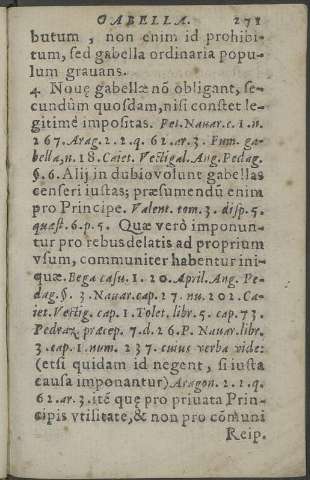 GABELLA. 271
butum, non enim id prohibi-
tum, sed gabella ordinaria popu-
lum grauans.
4. Nouę gabellæ nõ obligant, se-
cundùm quosdam, nisi constet le-
gitimè impositas. Pet. Nauar. c. 1. n.
267. Arag. 2. 2. q. 62. ar. 3. Fum. ga-
bella, n. 18. Caiet. Vectigal. Ang. Pedag.
§. 6. Alij in dubio volunt gabellas
censeri iustas; præsumendũ enim
pro Principe. Valent. tom. 3. disp. 5.
quæst. 6. p. 5. Quæ verò imponun-
tur pro rebus delatis ad proprium
vsum, communiter habentur ini-
quæ. Bega casu. 1. 20. April. Ang. Pe-
dag. §. 3. Nauar. cap. 17. nu. 202. Ca-
iet. Vectig. cap. 1. Tolet. libr. 5. cap. 73.
Pedraz. præcep. 7. d. 26. P. Nauar. libr.
3. cap. 1. num. 237. cuius verba vide:
(etsi quidam id negent, si iusta
causa imponantur) Aragon. 2. 2. q.
62. ar. 3. itẽ quę pro priuata Prin-
cipis vtilitate, & non pro cõmuni
Reip.